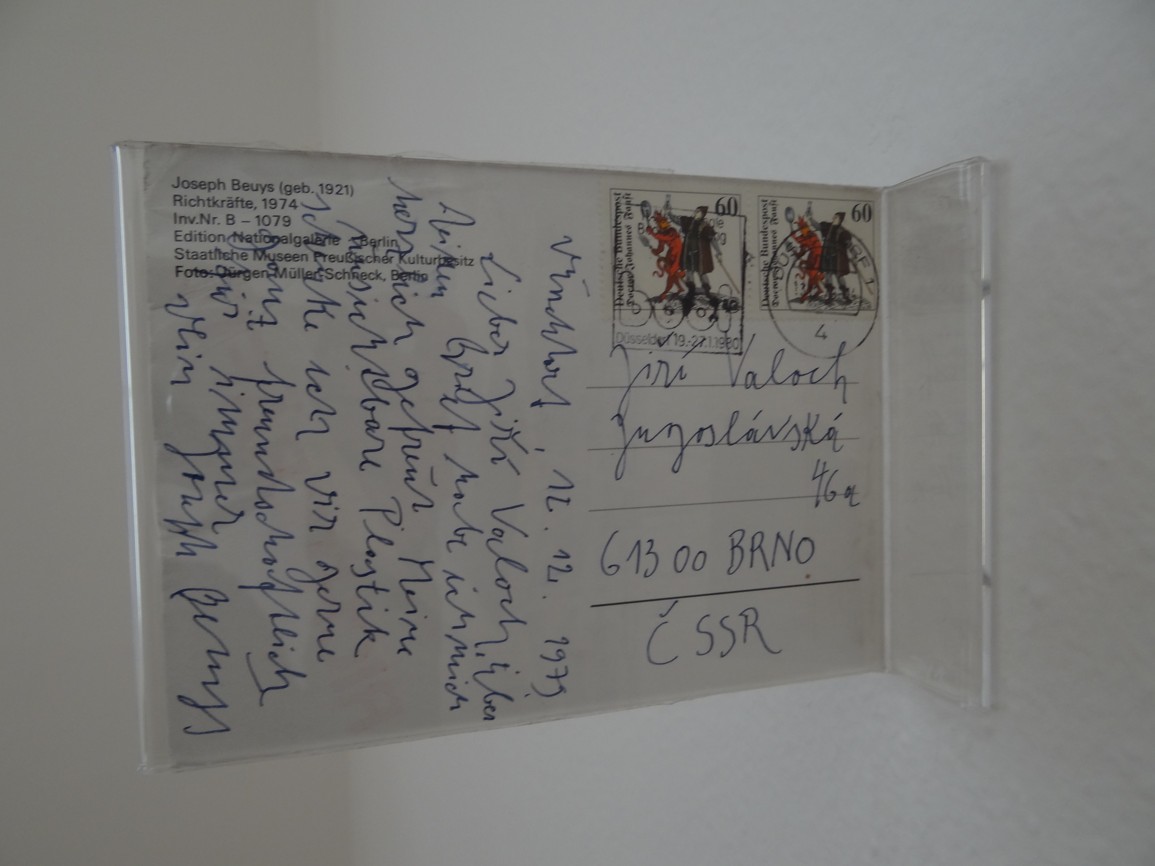 Joseph Beuys (geb. 1921)
Richtkräfte, 1974
Inv.Nr. B – 1079
Edition Nationalgalerie Berlin
Staatliche Museen Preußischer Kulturbesitz
Foto: Jürgen Müller-Schneck, Berlin
12. 12. 1979
Lieber Jiří Valoch, über
Deinen Brief habe ich mich
herzlich gefreut Meine
unsichtbare Plastik
schicke ich Dir gerne
Ganz freundschaftlich
immer
Dein Joseph Beuys
Deutsche Bundespost
Doctor Johannes Faust
60
Deutsche Bundespost
Doctor Johannes Faust
60
Düsseldorf 19.-27.1.1980
4
Jiří Valoch
Jugoslávská
46a
613 00 BRNO
ČSSR